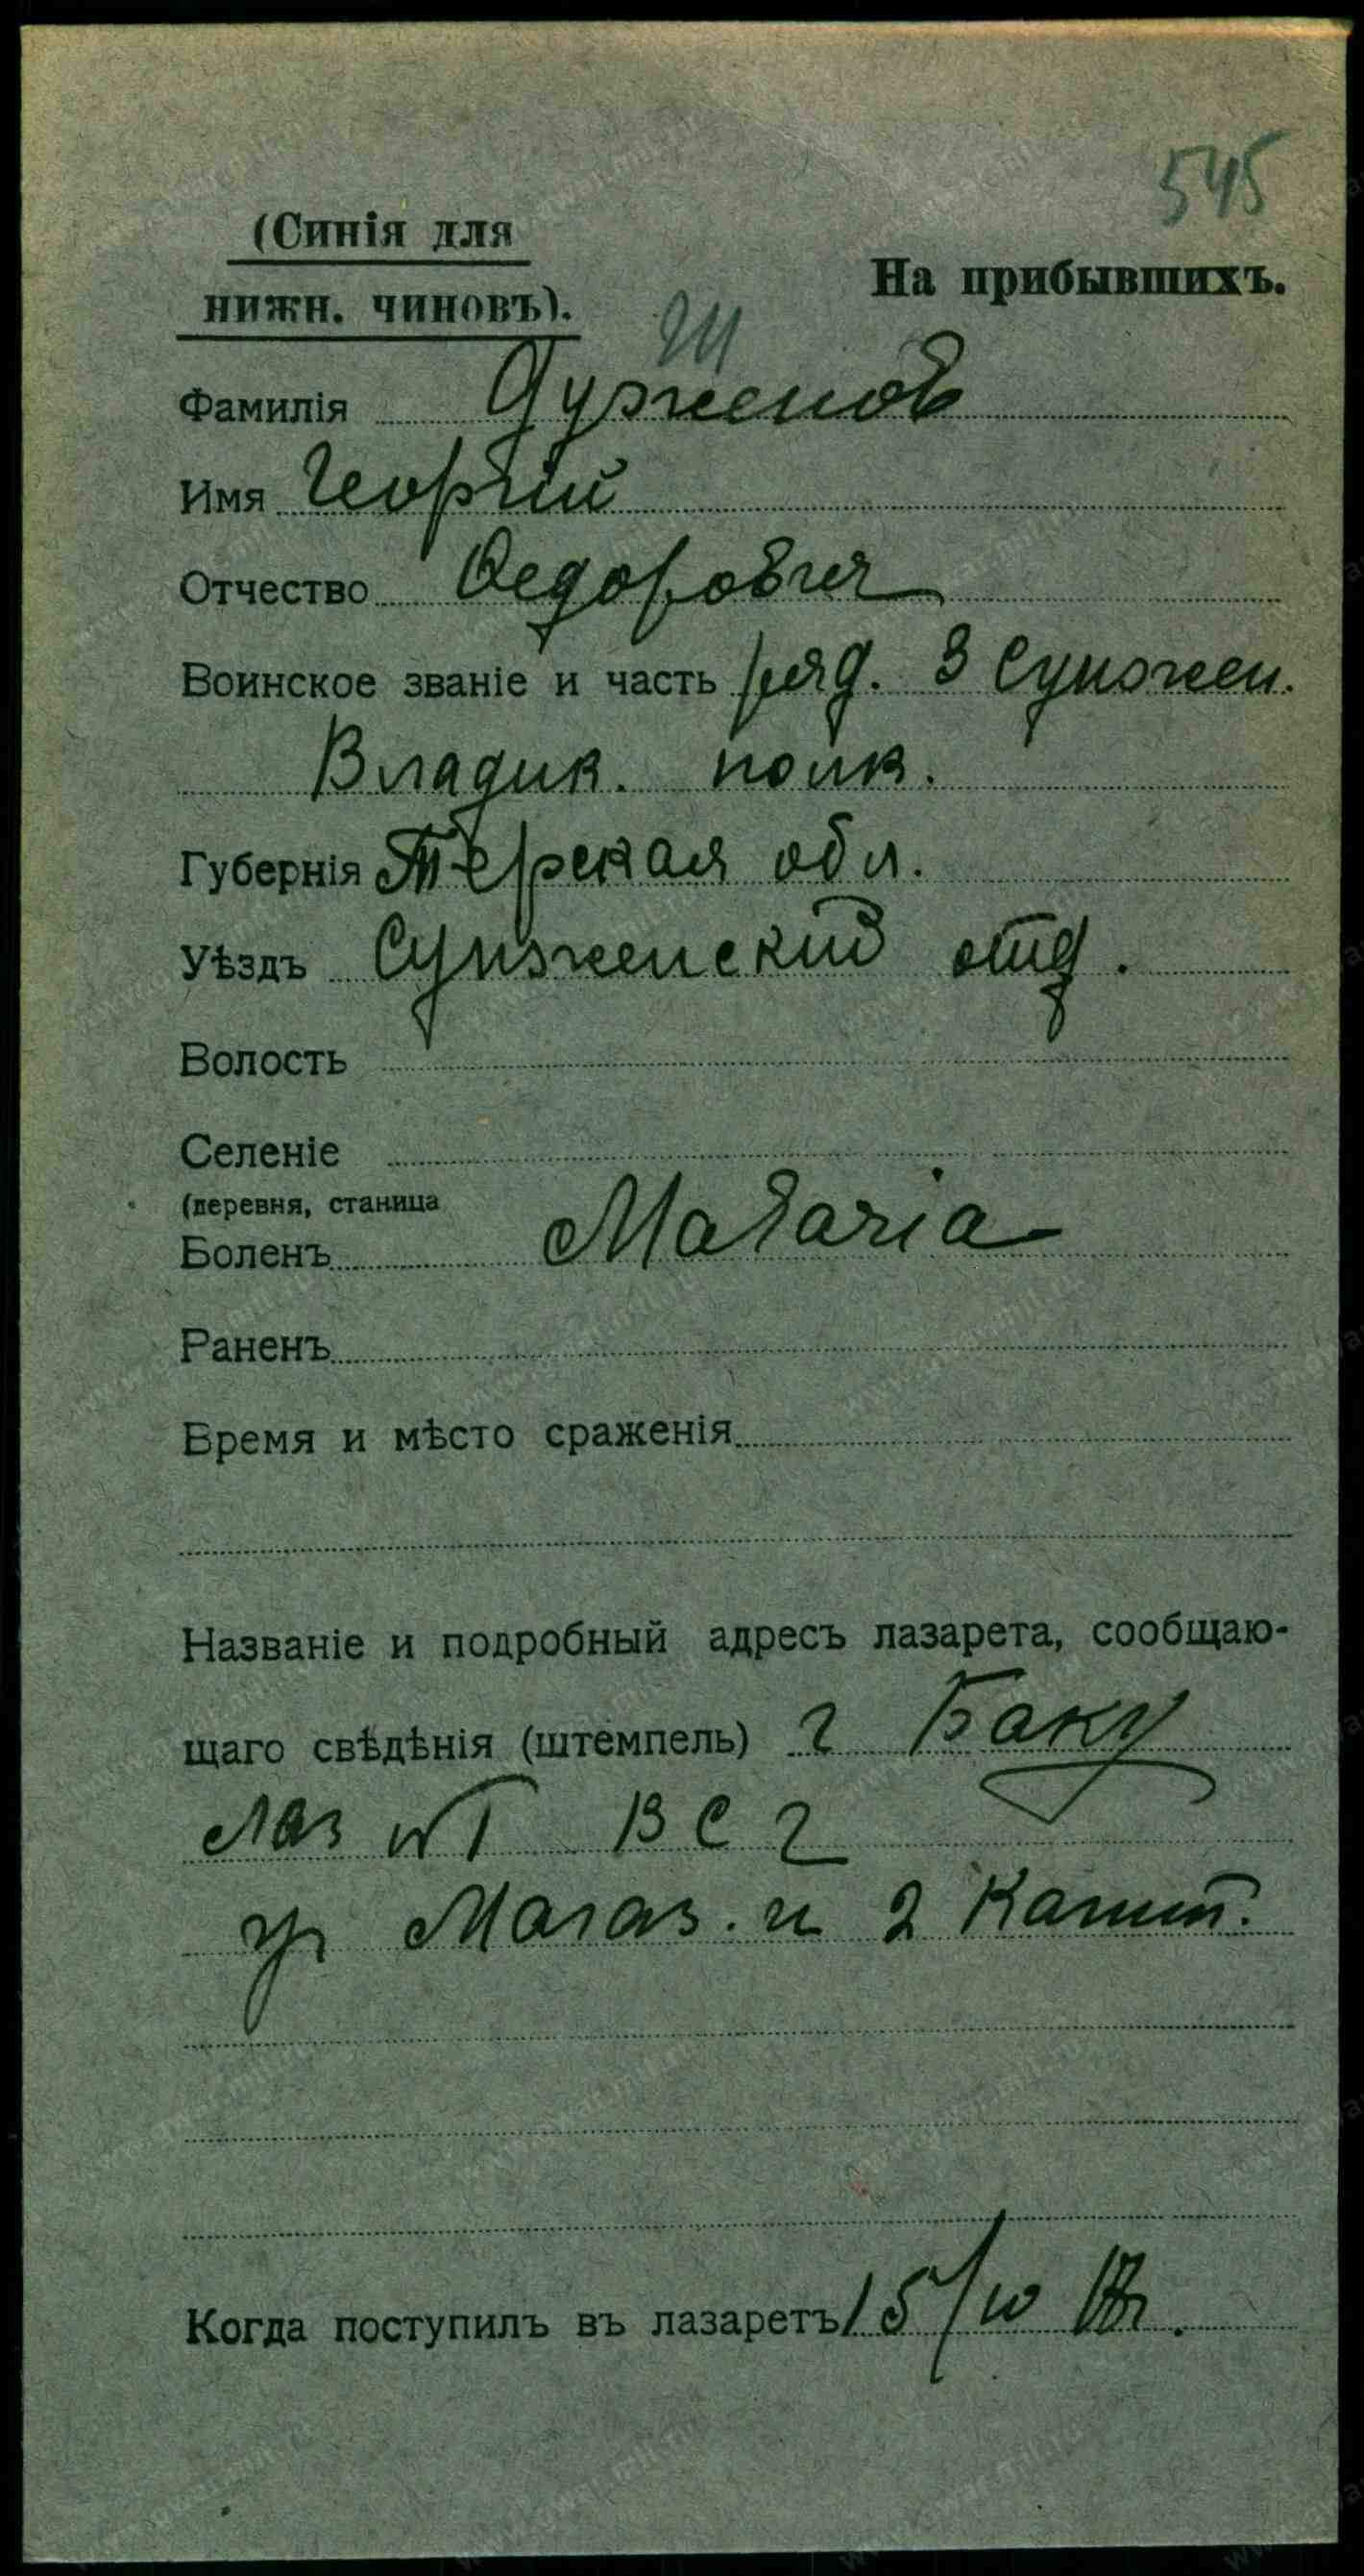 545
(Синія для
нижн. чиновъ).
На прибывшихъ.
Фамилія Дуженов
Имя Георгій
Отчество Федорович
Воинское званіе и часть ряд. 3 Сунжен.
Владик. полк.
Губернія Терская обл.
Уѣздъ Сунженский отд.
Волость
Селеніе
(деревня, станица
Боленъ Malaria
Раненъ
Время и мѣсто сраженія
Названіе и подробный адресъ лазарета, сообщаю-
щаго свѣдѣнія (штемпель) г Баку
Лаз № 1 В С Г
уг Магаз. и 2 Капит.
Когда поступилъ въ лазаретъ 15/IV 17 г.